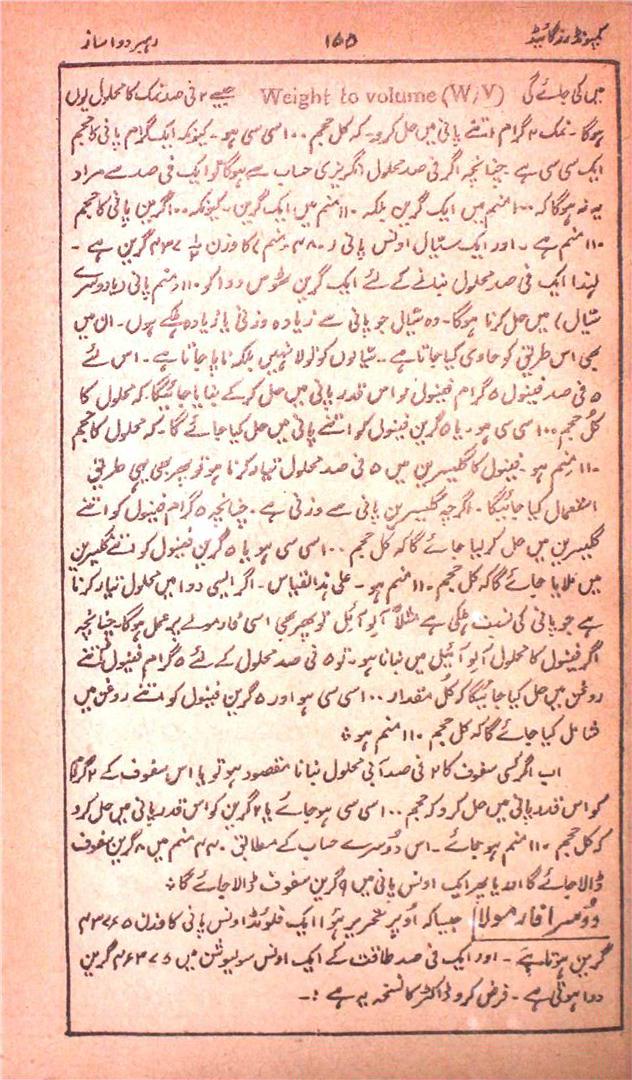 کمپونڈرز گائیڈ ۱۶۵ رہبر دوا ساز
میں کی جائے گی Weight to volume (W/V) جیسے ۲ فی صد نمک کا محلول یوں
ہوگا۔ نمک ۲ گرام اتنے پانی میں حل کرو۔ کہ کل حجم ۱۰۰ سی سی ہو۔ کیونکہ ایک گرام پانی کا حجم
ایک سی سی ہے۔ چنانچہ اگر فی صد محلول انگریزی حساب سے ہوگا تو ایک فی صد سے مراد
یہ نہ ہوگا کہ ۱۰۰ منم میں ایک گرین بلکہ ۱۱۰ منم میں ایک گرین۔ کیونکہ ۱۰۰ گرین پانی کا حجم
۱۱۰ منم ہے۔ اور ایک سیّال اونس پانی (۴۸۰ منم) کا وزن ۴۳۷ ½ گرین ہے۔
لہٰذا ایک فی صد محلول بنانے کے لئے ایک گرین ٹھوس دوا کو ۱۱۰ منم پانی (یا دوسرے
سیّال) میں حل کرنا ہوگا۔ وہ سیّال جو پانی سے زیادہ وزنی یا زیادہ ہلکے ہوں۔ ان میں
بھی اس طریق کو حاوی کیا جاتا ہے۔ سیّالوں کو تولا نہیں بلکہ ناپا جاتا ہے۔ اس لئے
۵ فی صد فینول ۵ گرام فینول کو اس قدر پانی میں حل کر کے بنایا جائیگا کہ محلول کا
کُل حجم ۱۰۰ سی سی ہو۔ یا ۵ گرین فینول کو اتنے پانی میں حل کیا جائے گا۔ کہ محلول کا حجم
۱۱۰ منم ہو۔ فینول کا گلیسرین میں ۵ فی صد محلول تیار کرنا ہو تو پھر بھی یہی طریق
استعمال کیا جائیگا۔ اگرچہ گلیسرین پانی سے وزنی ہے۔ چنانچہ ۵ گرام فینول کو اتنے
گلیسرین میں حل کر لیا جائے گا کہ کل حجم ۱۰۰ سی سی ہو یا ۵ گرین فینول کو اتنے گلیسرین
میں ملایا جائے گا کہ کل حجم ۱۱۰ منم ہو۔ علی ہذا القیاس۔ اگر ایسی دوا میں محلول تیار کرنا
ہے جو پانی کی نسبت ہلکی ہے مثلاً آلو آئیل تو پھر بھی اسی فارمولے پر عمل ہوگا۔ چنانچہ
اگر فینول کا محلول آلو آئیل میں بنانا ہو۔ تو ۵ فی صد محلول کے لئے ۵ گرام فینول کو اتنے
روغن میں حل کیا جائیگا کہ کُل مقدار ۱۰۰ سی سی ہو اور ۵ گرین فینول کو اتنے روغن میں
شامل کیا جائے گا کہ کل حجم ۱۱۰ منم ہو؞
اب اگر کسی سفوف کا ۲ فی صد آبی محلول بنانا مقصود ہو تو یا اس سفوف کے ۲ گرام
کو اس قدر پانی میں حل کرو کہ حجم ۱۰۰ سی سی ہو جائے یا ۲ گرین کو اس قدر پانی میں حل کرو
کہ کل حجم ۱۱۰ منم ہو جائے۔ اس دوسرے حساب کے مطابق ۴۴۰ منم میں ۸ گرین سفوف
ڈالا جائے گا اور یا پھر ایک اونس پانی میں ۹ گرین سفوف ڈالا جائے گا؞
دوسرا فارمولا جیسا کہ اُوپر تحریر ہُوا ایک فلوئڈ اونس پانی کا وزن ۴۳۷٫۵
گرین ہوتا ہے۔ اور ایک فی صد طاقت کے ایک اونس سولیوشن میں ۴٫۳۷۵ گرین
دوا ہوتی ہے۔ فرض کرو ڈاکٹر کا نسخہ یہ ہے :۔